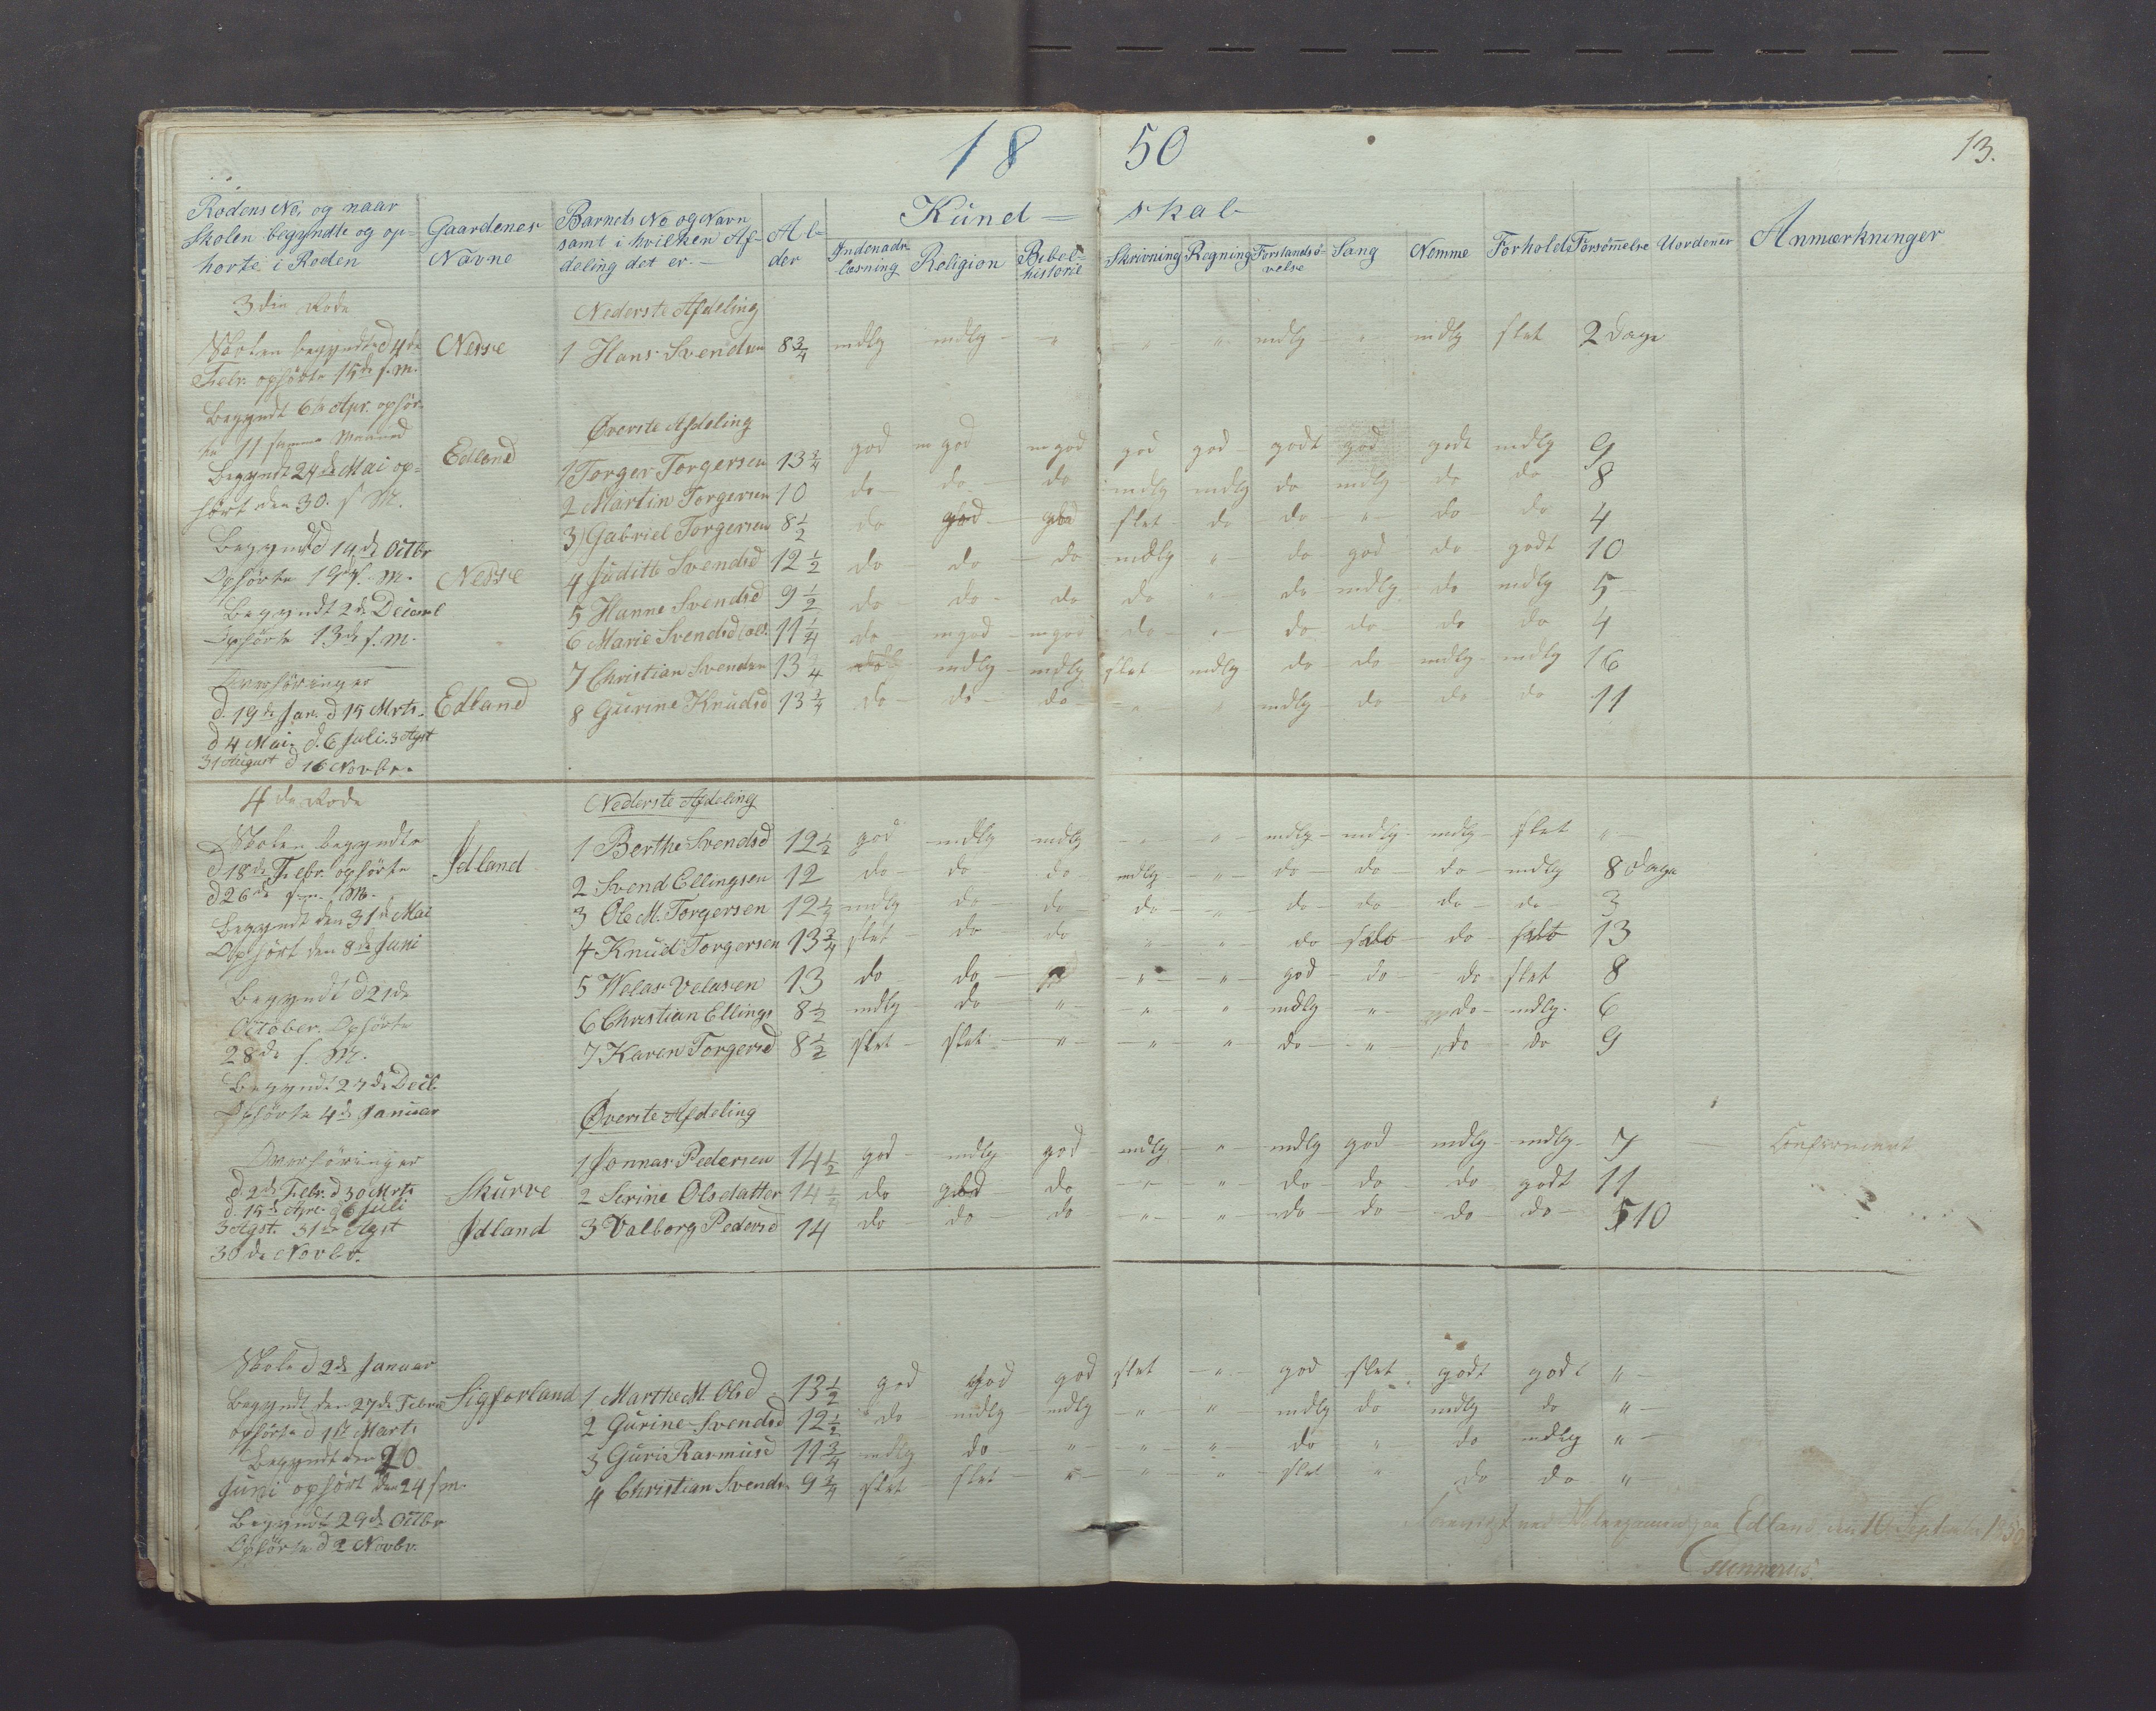 18 50
13.
Rodens No, og naar Skolen begyndte og ophørte i Roden | Gaardenes Navne | Barnets No og Navn samt i hvilken Afdeling det er. | Alder | Kund=skab | Indenadslæsning | Religion | Bibelhistorie | Skrivning | Regning | Forstandsøvelse | Sang | Nemme | Forhold | Forsømmelse | Uordener | Anmærkninger
3die Rode
Nederste Afdeling
Skolen begyndte d 4de
Febr. ophørte 15de s. m.
Nesse 1 Hans Svendsen 8 3/4 mdlg mdlg " " " mdlg " mdlg slet 2 Dage
Begyndt 6te Apr. ophør-
te 11 samme Maaned
Begyndt 24de Mai op=
hørt den 30. s. M.
Begyndt d 14de Octbr
Ophørte 19de s. m.
Begyndt 2de Decemb
Ophørte 13de s. m.
Overhøringer
d. 19de Jan. d 15 Mrts.
d 4 Mai. d. 6 Juli. 3 Agst
31 August d 16 Novbr.
Øverste Afdeling
Edland 1 Torger Torgersen 13 3/4 god m god m god god god godt god godt mdlg 9
2 Martin Torgersen 10 do do do mdlg mdlg do mdlg do do 8
3 Gabriel Torgersen 8 1/2 do god god slet do do " do do 4
Nesse 4 Juditte Svendsd 12 1/2 do do do mdlg " do god do godt 10
5 Hanne Svendsd 9 1/2 do do do do " do mdlg do mdlg 5
6 Marie Svendsd 11 1/4 do m god m god do " do do do do 4
7 Christian Svendsen 13 1/4 mdlg mdlg slet mdlg do do mdlg mdlg 16
Edland 8 Gurine Knudsd 13 3/4 do do do " " mdlg do do do 11
4de Rode
Nederste Afdeling
Skolen begyndte
d 18de Febr. ophørte
d 26de s. M.
Begyndt den 31de Mai
Ophørt den 8de Juni
Begyndt d 21de
October. Ophørte
28de s. M.
Begyndt 27de Decb
Ophørte 4de Januar
Overhøringer
d. 2de Febr. d 30 Mrts
d. 15de Apr. d 6 Juli
3 Agst. 31te Agst
30de Novbr.
1 Berthe Svendsd 12 1/2 god mdlg mdlg " " mdlg mdlg mdlg slet "
Idland 2 Svend Ellingsen 12 do do do mdlg " do do do mdlg 8 Dage
3 Ole M. Torgersen 12 1/4 mdlg do do do " do do do do 3
4 Knud Torgersen 13 3/4 slet do do " " do do do 13
5 Velas Velasen 13 do do " " " god do do slet 8
6 Christian Ellings 8 1/2 mdlg do " " " mdlg " do mdlg 6
7 Karen Torgersd 8 1/2 slet slet " " " do " do do 9
Øverste Afdeling
1 Jonnas Pedersen 14 1/2 god mdlg god mdlg " mdlg god mdlg mdlg 7 Confirmeret
Skurve 2 Serine Olsdatter 14 1/2 do god do " " do do do godt 11
Idland 3 Valborg Pedersd 14 do do do " " do do do do 10
Skole d 2de Januar
Begyndt den 27de Febr
ophørte d 1ste Marts
Begyndt den 20
Juni ophørt den 24 s m.
Begyndt 29de Octbr
Ophørte d 2 Novbr.
Sigforland 1 Marthe M. Olsd 13 1/2 god god god slet " god slet godt godt "
2 Gurine Svendsd 12 1/2 do mdlg mdlg " " mdlg do mdlg do "
3 Guri Rasmusd 11 3/4 mdlg do " " " do " do mdlg "
4 Christian Svends 9 3/4 slet slet " " " slet " do do "
Edland den 16 September 1850